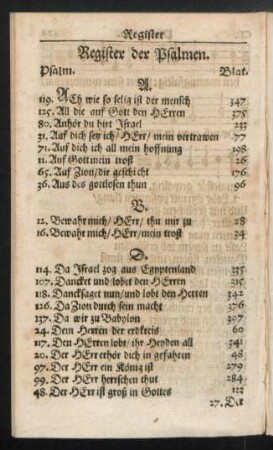 Register
Register der Psalmen.
Psalm. Blat.
A.
119. ACh wie so selig ist der mensch 347
125. All die auf Gott den HErren 375
80. Anhör du hirt Israel 233
31. Auf dich sey ich/HErr/mein vertrawen 77
71. Auf dich ich all mein hoffnung 198
11. Auf Gott mein trost 26
65. Auf Zion/dir geschicht 176
36. Aus des gottlosen thun 96
B.
12. Bewahr mich/HErr/thu mir zu 28
16. Bewahr mich/HErr/mein trost 34
D.
114. Da Israel zog aus Egyptenland 335
107. Dancket und lobet den HErren 315
118. Dancksaget nun/und lobt den Herren 342
126. Da Zion durch sein macht 376
137. Da wir zu Babylon 397
24. Dem Herren der erdkreis 60
117. Den HErren lobt/ihr Heyden all 341
20. Der HErr erhör dich in gefahren 48
97. Der HErr ein König ist 279
99. Der HErr herrschen thut 284
48. Der HErr ist groß in Gottes 133
27. Der